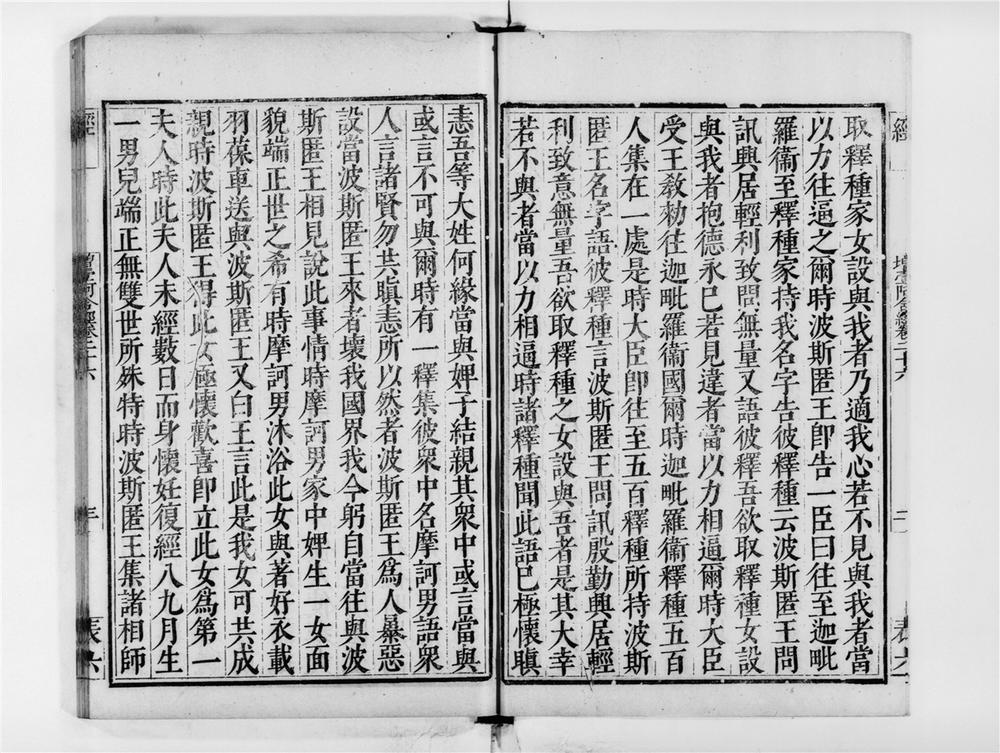 取釋種家女設與我者乃適我心若不見與我者當
以力往逼之爾時波斯匿王即告一臣曰往至迦毗
羅衛至釋種家持我名字告彼釋種云波斯匿王問
訊興居輕利致問無量又語彼釋吾欲取釋種女設
與我者抱德永已若見違者當以力相逼爾時大臣
受王教勅往迦毗羅衛國爾時迦毗羅衛釋種五百
人集在一處是時大臣即往至五百釋種所持波斯
匿王名字語彼釋種言波斯匿王問訊殷勤興居輕
利致意無量吾欲取釋種之女設與吾者是其大幸
若不與者當以力相逼時諸釋種聞此語已極懷瞋
恚吾等大姓何緣當與婢子結親其衆中或言當與
或言不可與爾時有一釋集彼衆中名摩訶男語衆
人言諸賢勿共瞋恚所以然者波斯匿王爲人暴惡
設當波斯匿王來者壞我國界我今躬自當往與波
斯匿王相見說此事情時摩訶男家中婢生一女面
貌端正世之希有時摩訶男沐浴此女與著好衣載
羽葆車送與波斯匿王又白王言此是我女可共成
親時波斯匿王得此女極懷歡喜即立此女爲第一
夫人時此夫人未經數日而身懷妊復經八九月生
一男兒端正無雙世所殊特時波斯匿王集諸相師